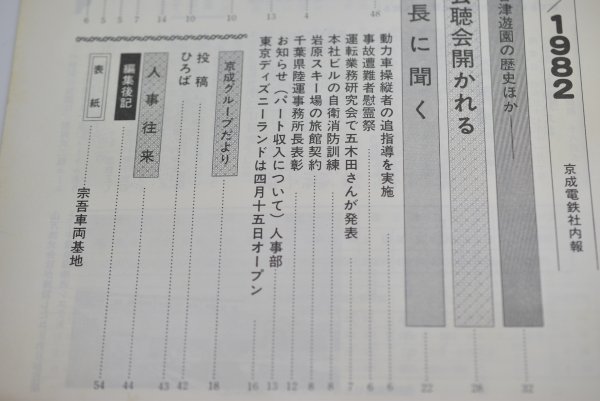 ／1982
京成電鉄社内報
津遊園の歴史ほか
32
会聴会開かれる
28
長に聞く
22
動力車操縦者の追指導を実施
6
事故遭難者慰霊祭
6
運転業務研究会で五木田さんが発表
7
本社ビルの自衛消防訓練
8
岩原スキー場の旅館契約
8
千葉県陸運事務所長表彰
12
お知らせ（パート収入について）人事部
13
東京ディズニーランドは四月十五日オープン
16
京成グループだより
18
投稿
ひろば
42
人事往来
43
編集後記
44
表紙
宗吾車両基地
54
48
14
10
10
14
6
5
6